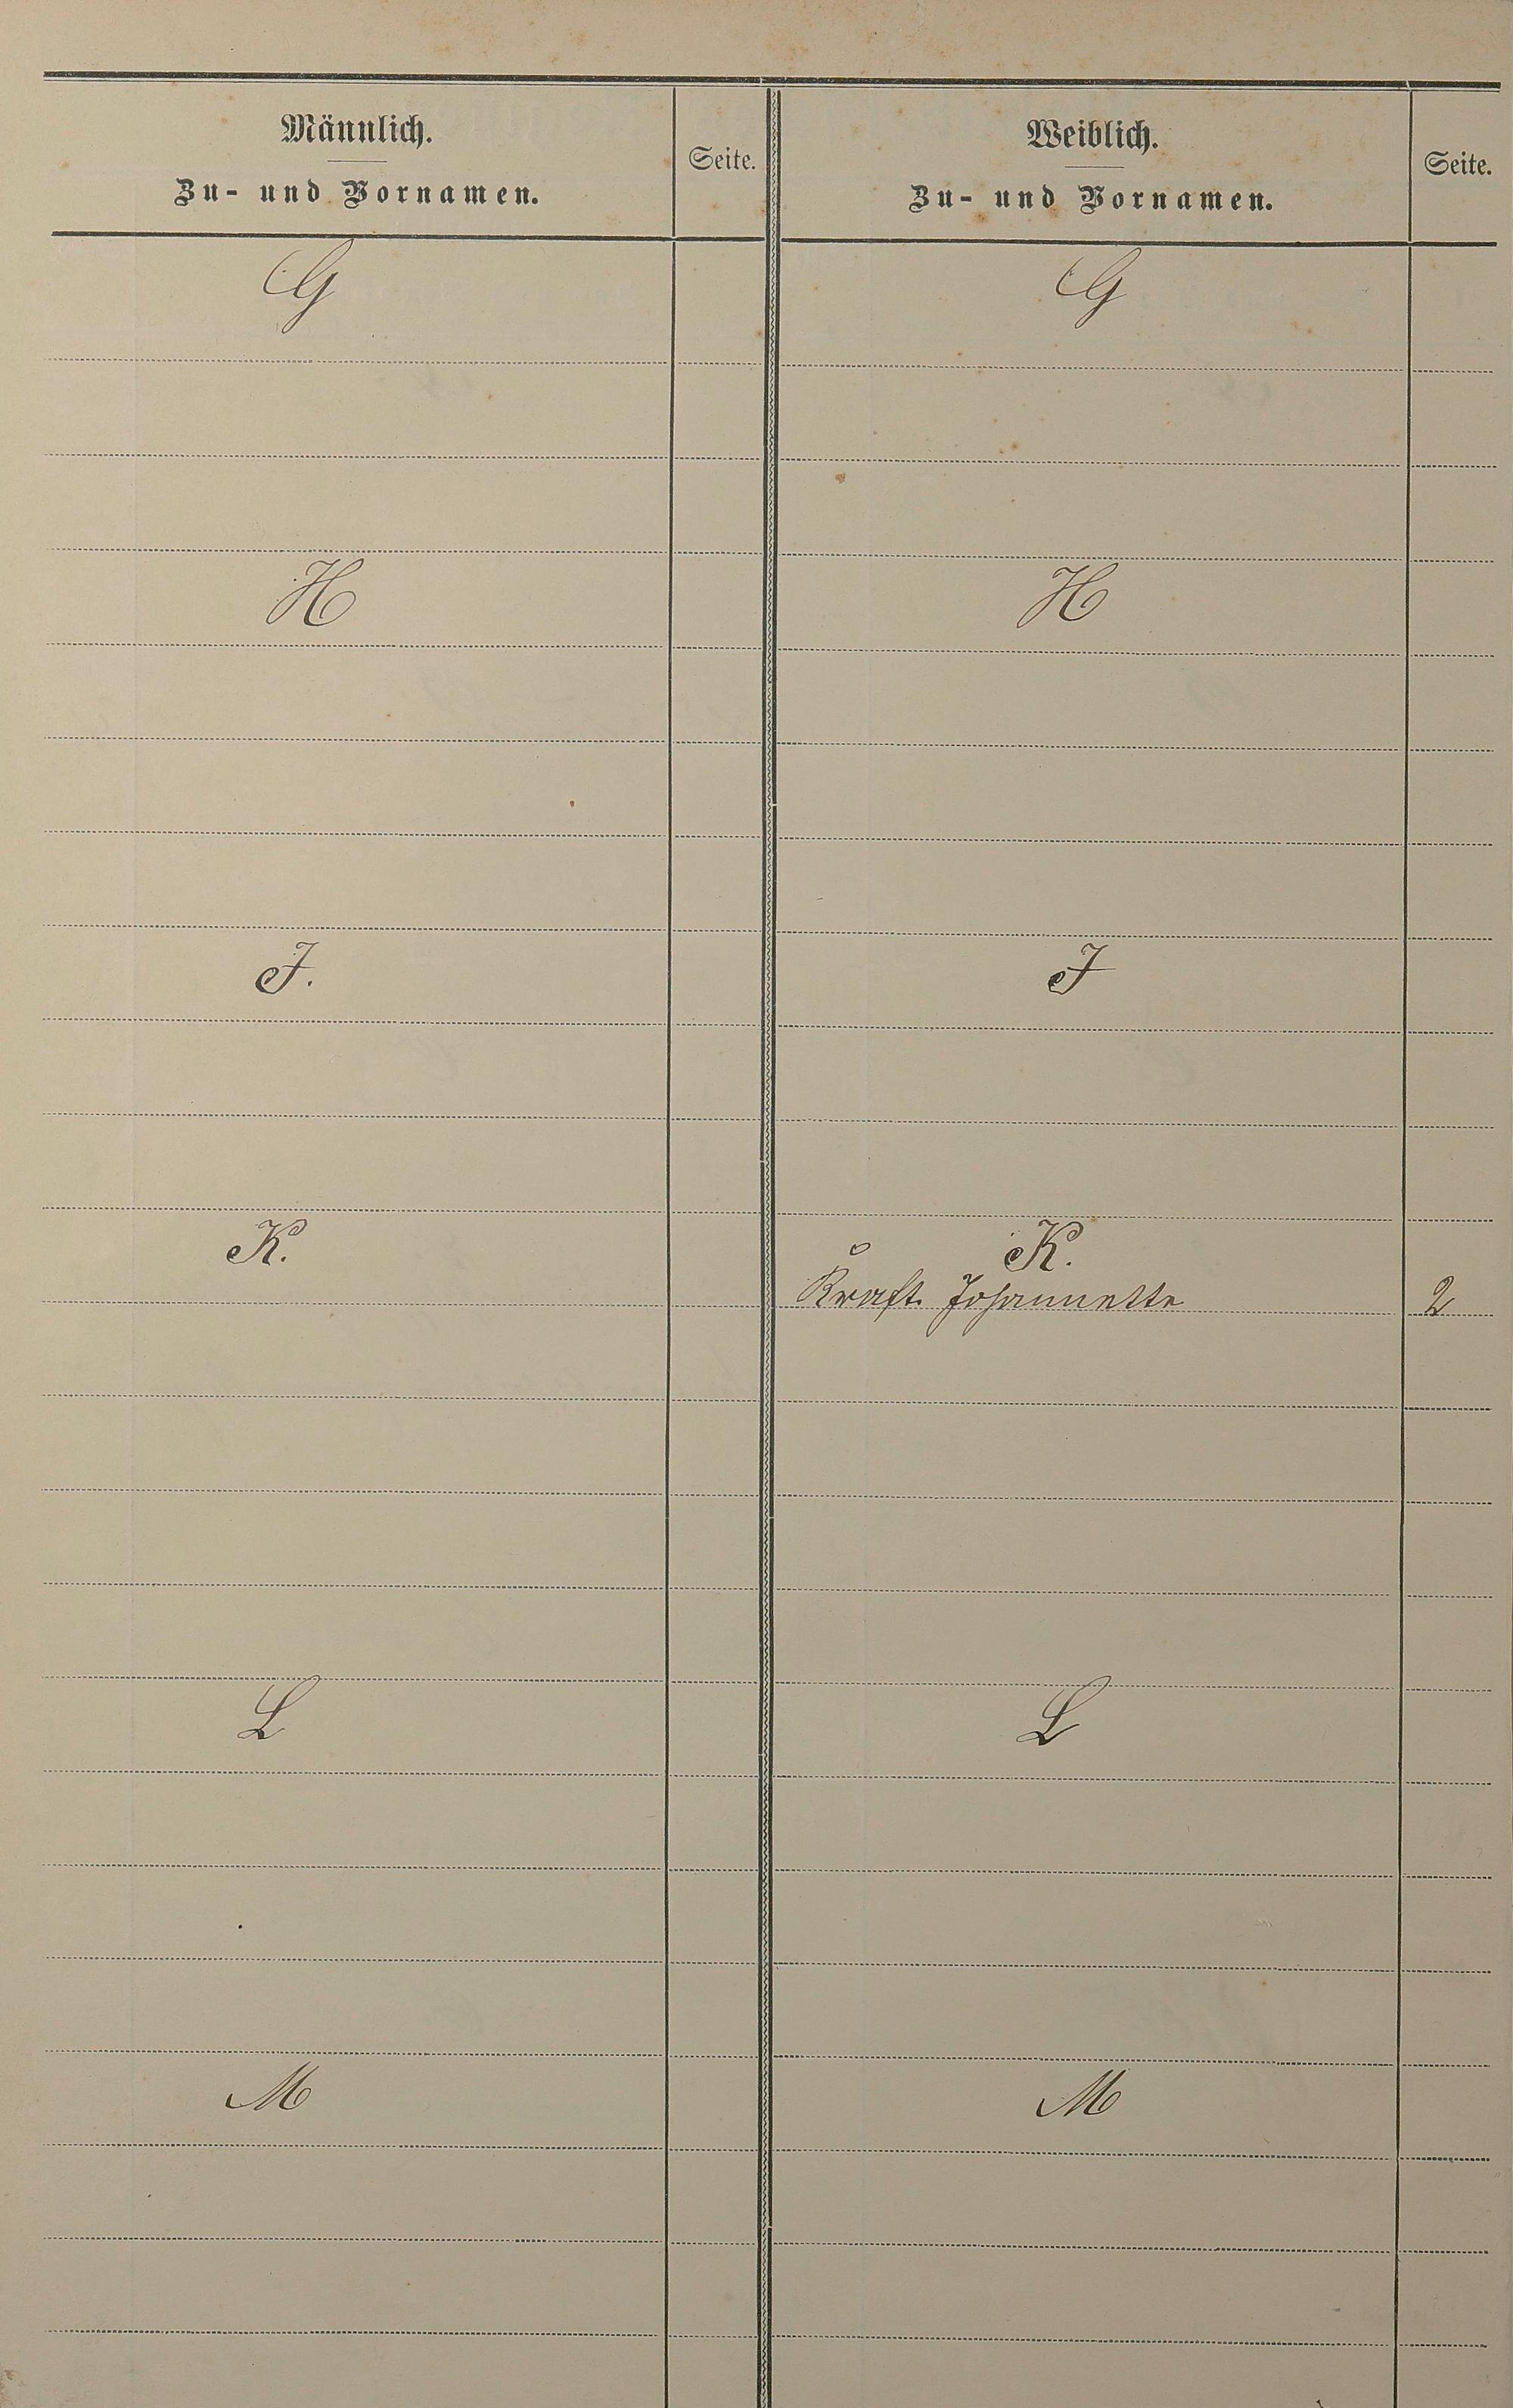 Männlich.
Zu- und Vornamen.
Seite.
Weiblich.
Zu- und Vornamen.
Seite.
G G
H H
J. J
K. K.
Kraft Johannette 2
L L
M M